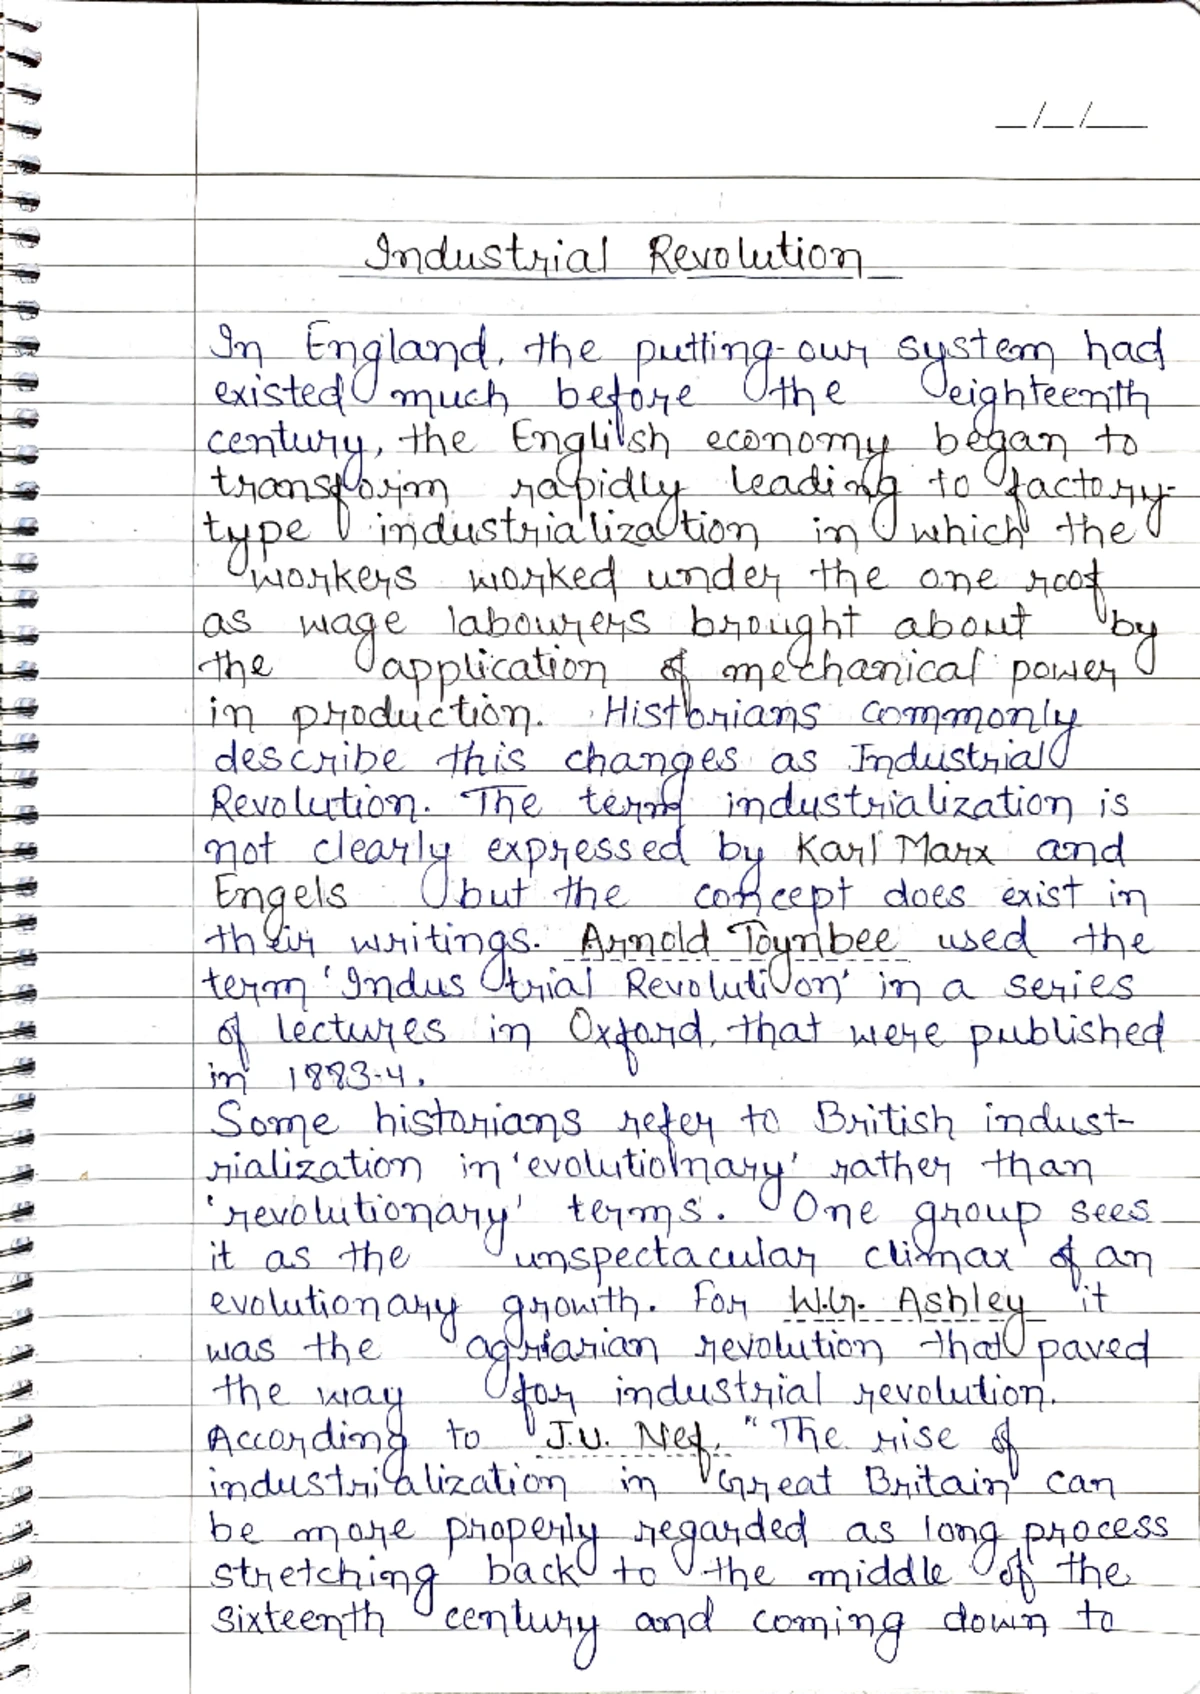 _/_/__
Industrial Revolution
In England, the putting-our system had
existed much before the eighteenth
century, the English economy began to
transform rapidly leading to factory-
type industrialization in which the
workers worked under the one roof
as wage labourers brought about by
the application of mechanical power
in production. Historians commonly
describe this changes as Industrial
Revolution. The term industrialization is
not clearly expressed by Karl Marx and
Engels but the concept does exist in
their writings. Arnold Toynbee used the
term 'Indus trial Revolution' in a series
of lectures in Oxford, that were published
in 1883-4.
Some historians refer to British indust-
rialization in 'evolutionary' rather than
'revolutionary' terms. One group sees
it as the unspectacular climax of an
evolutionary growth. For W.G. Ashley it
was the agrarian revolution that paved
the way for industrial revolution.
According to J.U. Nef, "The rise of
industrialization in Great Britain can
be more properly regarded as long process
stretching back to the middle of the
sixteenth century and coming down to